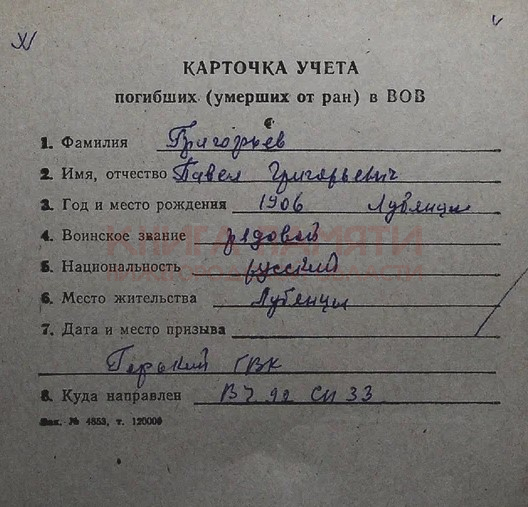 КАРТОЧКА УЧЕТА
погибших (умерших от ран) в ВОВ
1. Фамилия Григорьев
2. Имя, отчество Павел Григорьевич
3. Год и место рождения 1906 Лубянцы
4. Воинское звание рядовой
КНИГА ПАМЯТИ
5. Национальность русский
6. Место жительства Лубянцы
7. Дата и место призыва
Горький ГВК
8. Куда направлен ВЧ 92 СП 33
Зак. № 4853, т. 120000